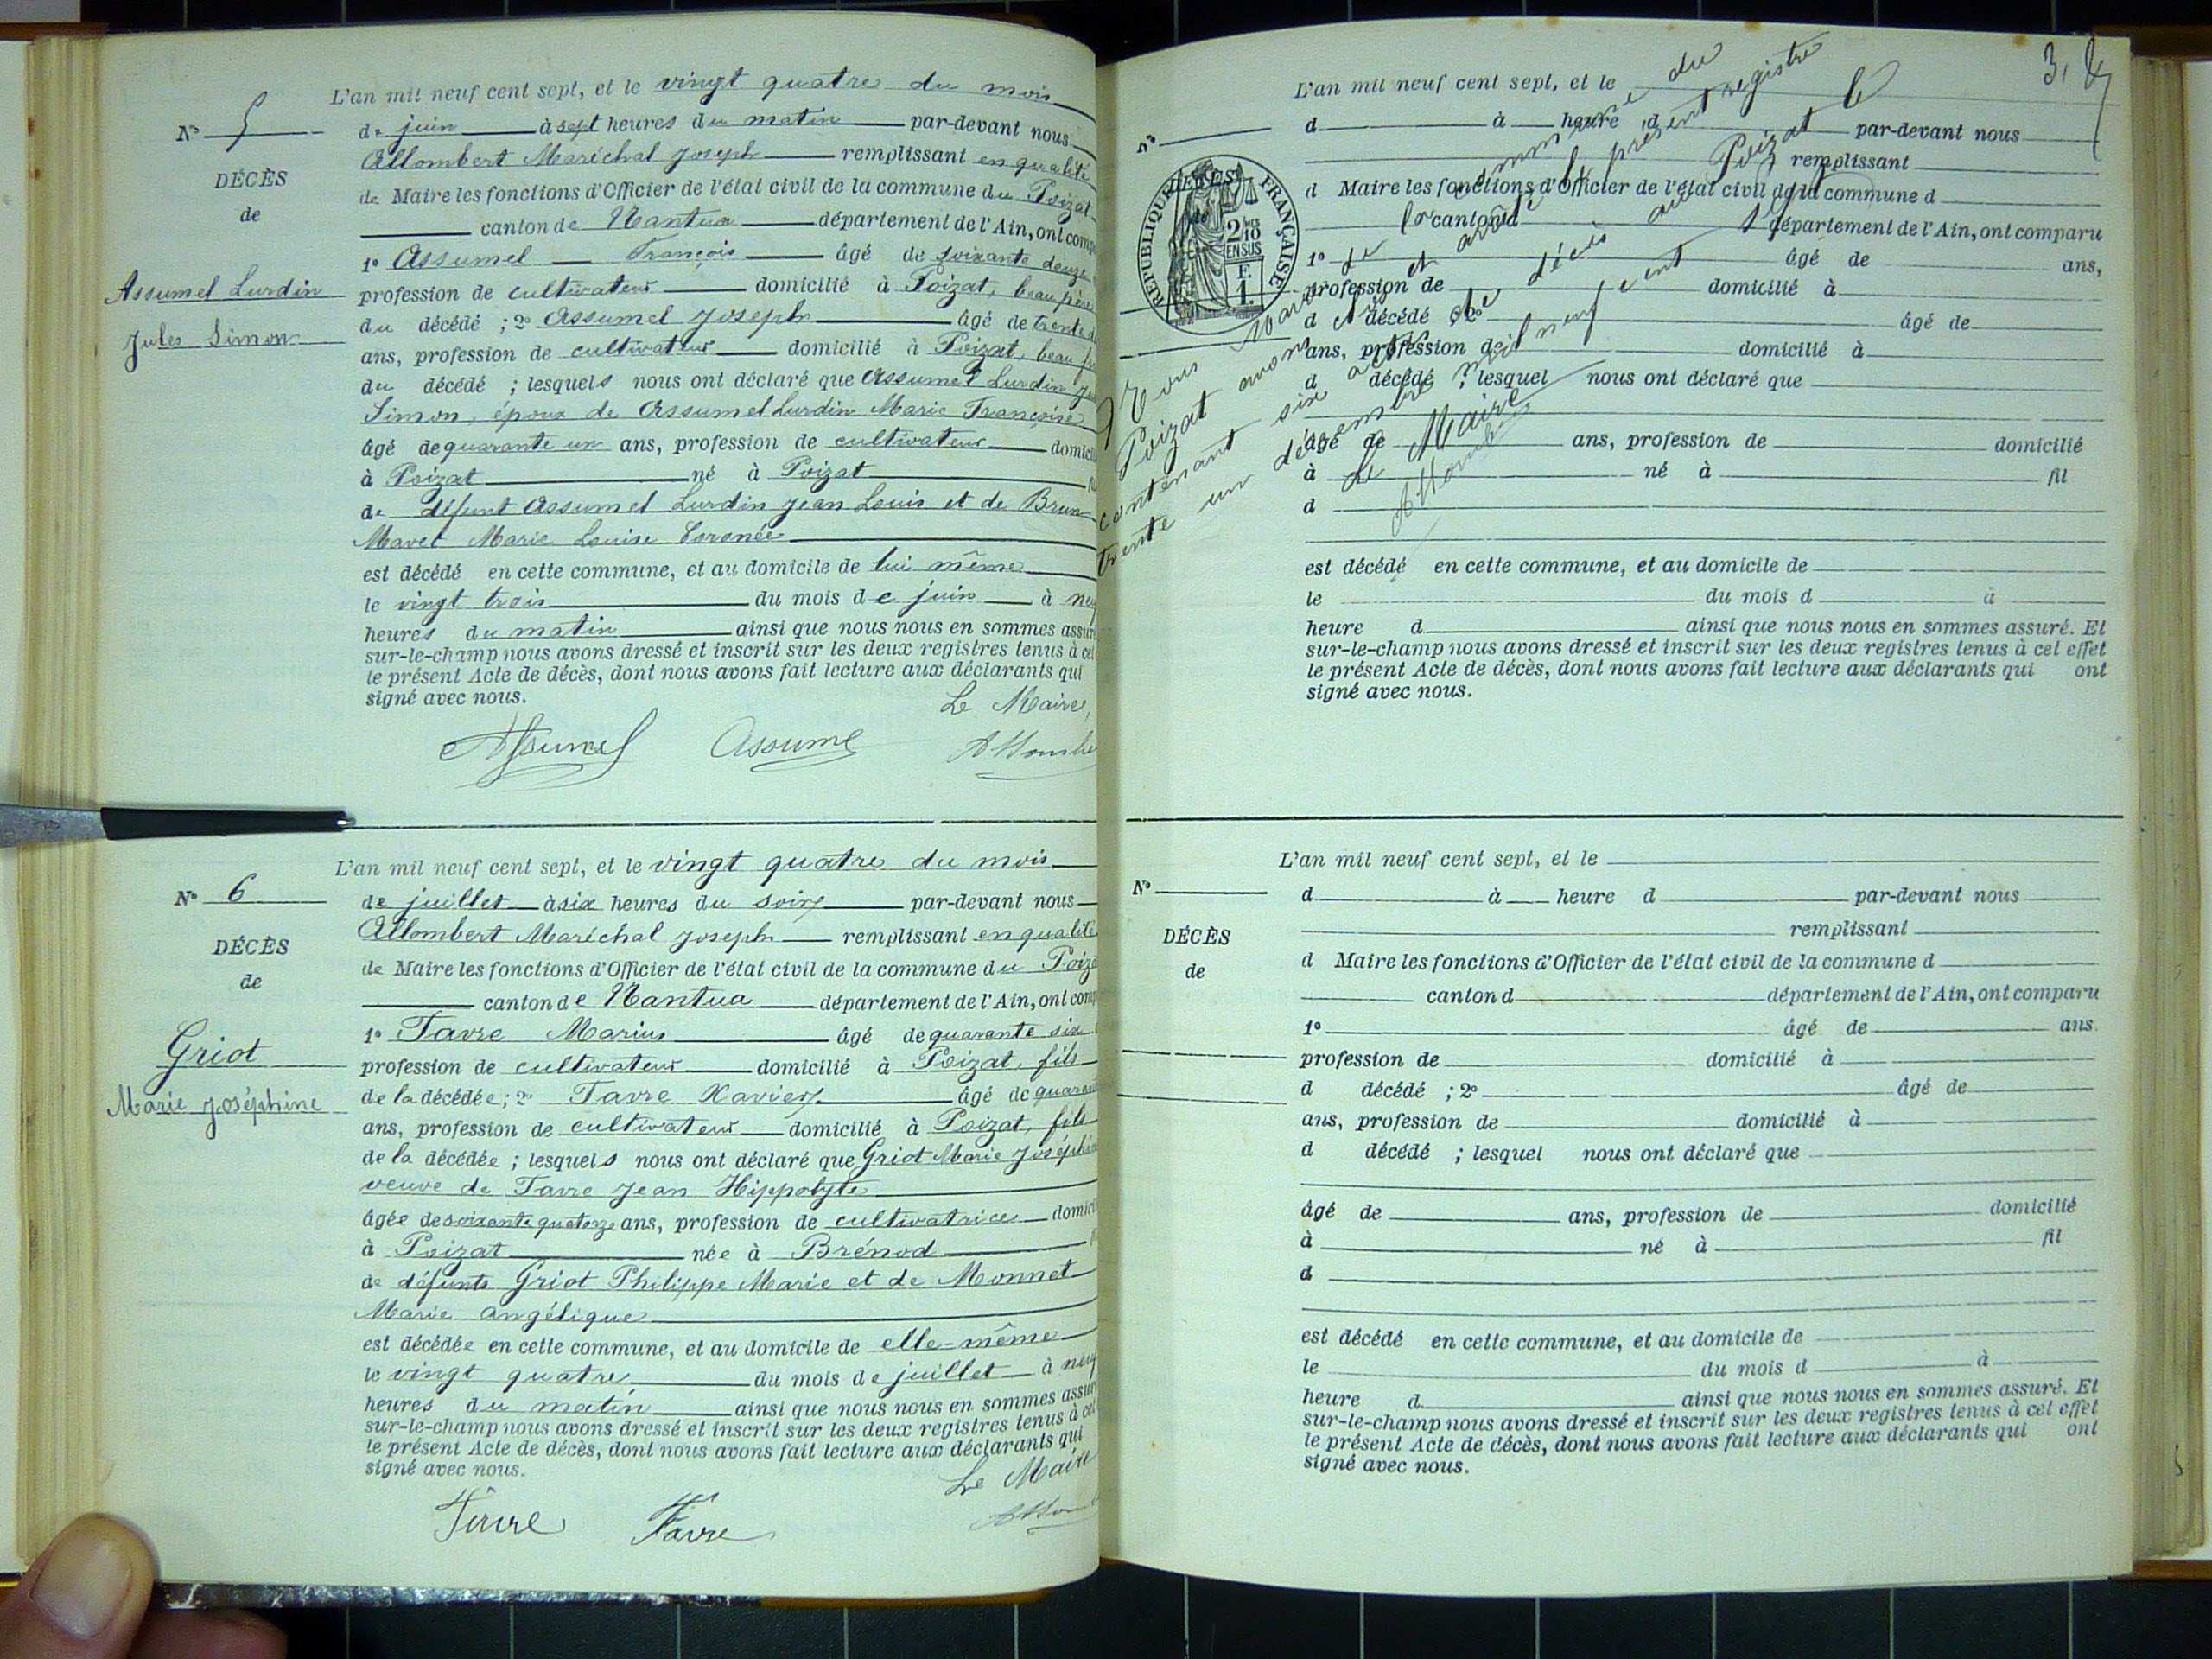 L'an mil neuf cent sept, et le vingt quatre du mois
N° 5
de juin à sept heures du matin par-devant nous
Allombert Maréchal Joseph remplissant en qualité
DÉCÈS
de Maire les fonctions d'Officier de l'état civil de la commune du Poizat
de
canton de Nantua département de l'Ain, ont comp
1° Assumel François âgé de soixante douze
Assumel Lurdin
profession de cultivateur domicilié à Poizat, beau père
Jules Simon
du décédé ; 2° Assumel Joseph âgé de trente
ans, profession de cultivateur domicilié à Poizat, beau
du décédé ; lesquels nous ont déclaré que Assumel Lurdin
Simon, époux de Assumel Lurdin Marie Françoise
âgé de quarante un ans, profession de cultivateur domicil
à Poizat né à Poizat
de défunt Assumel Lurdin Jean Louis et de Brun
Mavet Marie Louise Coronée
est décédé en cette commune, et au domicile de lui même
le vingt trois du mois de juin à neu
heures du matin ainsi que nous nous en sommes assuré
sur-le-champ nous avons dressé et inscrit sur les deux registres tenus à cet
le présent Acte de décès, dont nous avons fait lecture aux déclarants qui
signé avec nous.
Le Maire,
Assumel Assumel Allombe
L'an mil neuf cent sept, et le vingt quatre du mois
N° 6
de juillet à six heures du soir par-devant nous
Allombert Maréchal Joseph remplissant en qualité
DÉCÈS
de Maire les fonctions d'Officier de l'état civil de la commune du Poiza
de
canton de Nantua département de l'Ain, ont comp
1° Favre Marius âgé de quarante six
Griot
profession de cultivateur domicilié à Poizat, fils
Marie Joséphine
de la décédée ; 2° Favre Xavier âgé de quaran
ans, profession de cultivateur domicilié à Poizat, fils
de la décédée ; lesquels nous ont déclaré que Griot Marie Joséphine
veuve de Favre Jean Hippolyte
âgée de soixante quatorze ans, profession de cultivatrice domici
à Poizat née à Brénod
de défunts Griot Philippe Marie et de Monnet
Marie Angélique
est décédée en cette commune, et au domicile de elle-même
le vingt quatre du mois de juillet à neuf
heures du matin ainsi que nous nous en sommes assuré
sur-le-champ nous avons dressé et inscrit sur les deux registres tenus à cet
le présent Acte de décès, dont nous avons fait lecture aux déclarants qui
signé avec nous.
Le Maire
Favre Favre Allom
L'an mil neuf cent sept, et le
N°
d à heure d par-devant nous
remplissant
d Maire les fonctions d'Officier de l'état civil de la commune d
canton d département de l'Ain, ont comparu
1° âgé de ans,
profession de domicilié à
d décédé ; 2° âgé de
ans, profession de domicilié à
d décédé ; lesquel nous ont déclaré que
âgé de ans, profession de domicilié
à né à fil
d
est décédé en cette commune, et au domicile de
le du mois d à
heure d ainsi que nous nous en sommes assuré. Et
sur-le-champ nous avons dressé et inscrit sur les deux registres tenus à cet effet
le présent Acte de décès, dont nous avons fait lecture aux déclarants qui ont
signé avec nous.
RÉPUBLIQUE FRANÇAISE
2/10
EN SUS
F.
1.
Nous Maire de la commune du
Poizat avons et arrêté le présent registre
contenant six actes de décès au Poizat le
trente un décembre mil neuf cent sept
Le Maire
Allombert
L'an mil neuf cent sept, et le
N°
d à heure d par-devant nous
remplissant
DÉCÈS
d Maire les fonctions d'Officier de l'état civil de la commune d
de
canton d département de l'Ain, ont comparu
1° âgé de ans
profession de domicilié à
d décédé ; 2° âgé de
ans, profession de domicilié à
d décédé ; lesquel nous ont déclaré que
âgé de ans, profession de domicilié
à né à fil
d
est décédé en cette commune, et au domicile de
le du mois d à
heure d ainsi que nous nous en sommes assuré. Et
sur-le-champ nous avons dressé et inscrit sur les deux registres tenus à cet effet
le présent Acte de décès, dont nous avons fait lecture aux déclarants qui ont
signé avec nous.